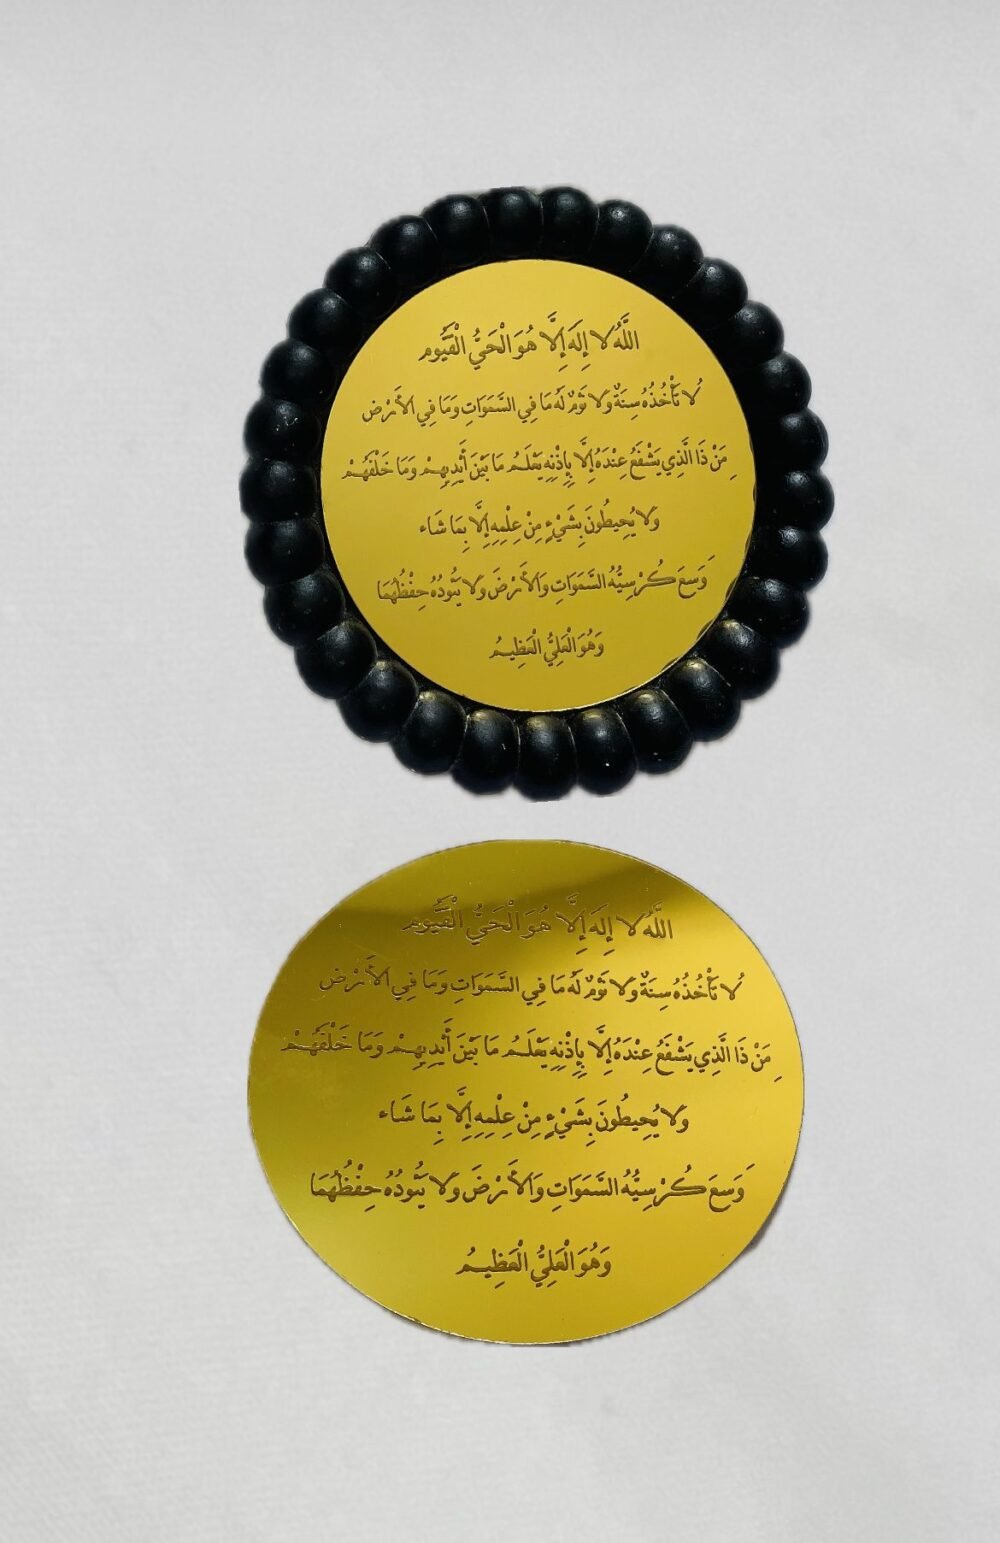 اللَّهُ لا إِلَهَ إِلَّا هُوَ الْحَيُّ الْقَيُّوم
لُا تَأْخُذُهُ سِنَةٌ وَلا نَوْمٌ لَهُ مَا فِي السَّمَوَاتِ وَمَا فِي الأَرْضِ
مَنْ ذَا الَّذِي يَشْفَعُ عِنْدَهُ إِلَّا بِإِذْنِهِ يَعْلَمُ مَا بَيْنَ أَيْدِيهِمْ وَمَا خَلْفَهُمْ
وَلا يُحِيطُونَ بِشَيْءٍ مِنْ عِلْمِهِ إِلَّا بِمَا شَاء
وَسِعَ كُرْسِيُّهُ السَّمَوَاتِ وَالأَرْضَ وَلا يَئُودُهُ حِفْظُهُمَا
وَهُوَ الْعَلِيُّ الْعَظِيمُ
اللَّهُ لا إِلَهَ إِلَّا هُوَ الْحَيُّ الْقَيُّوم
لُا تَأْخُذُهُ سِنَةٌ وَلا نَوْمٌ لَهُ مَا فِي السَّمَوَاتِ وَمَا فِي الأَرْضِ
مَنْ ذَا الَّذِي يَشْفَعُ عِنْدَهُ إِلَّا بِإِذْنِهِ يَعْلَمُ مَا بَيْنَ أَيْدِيهِمْ وَمَا خَلْفَهُمْ
وَلا يُحِيطُونَ بِشَيْءٍ مِنْ عِلْمِهِ إِلَّا بِمَا شَاء
وَسِعَ كُرْسِيُّهُ السَّمَوَاتِ وَالأَرْضَ وَلا يَئُودُهُ حِفْظُهُمَا
وَهُوَ الْعَلِيُّ الْعَظِيمُ